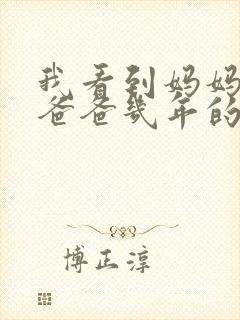 我看到妈妈
爸爸幾年的
博正淳